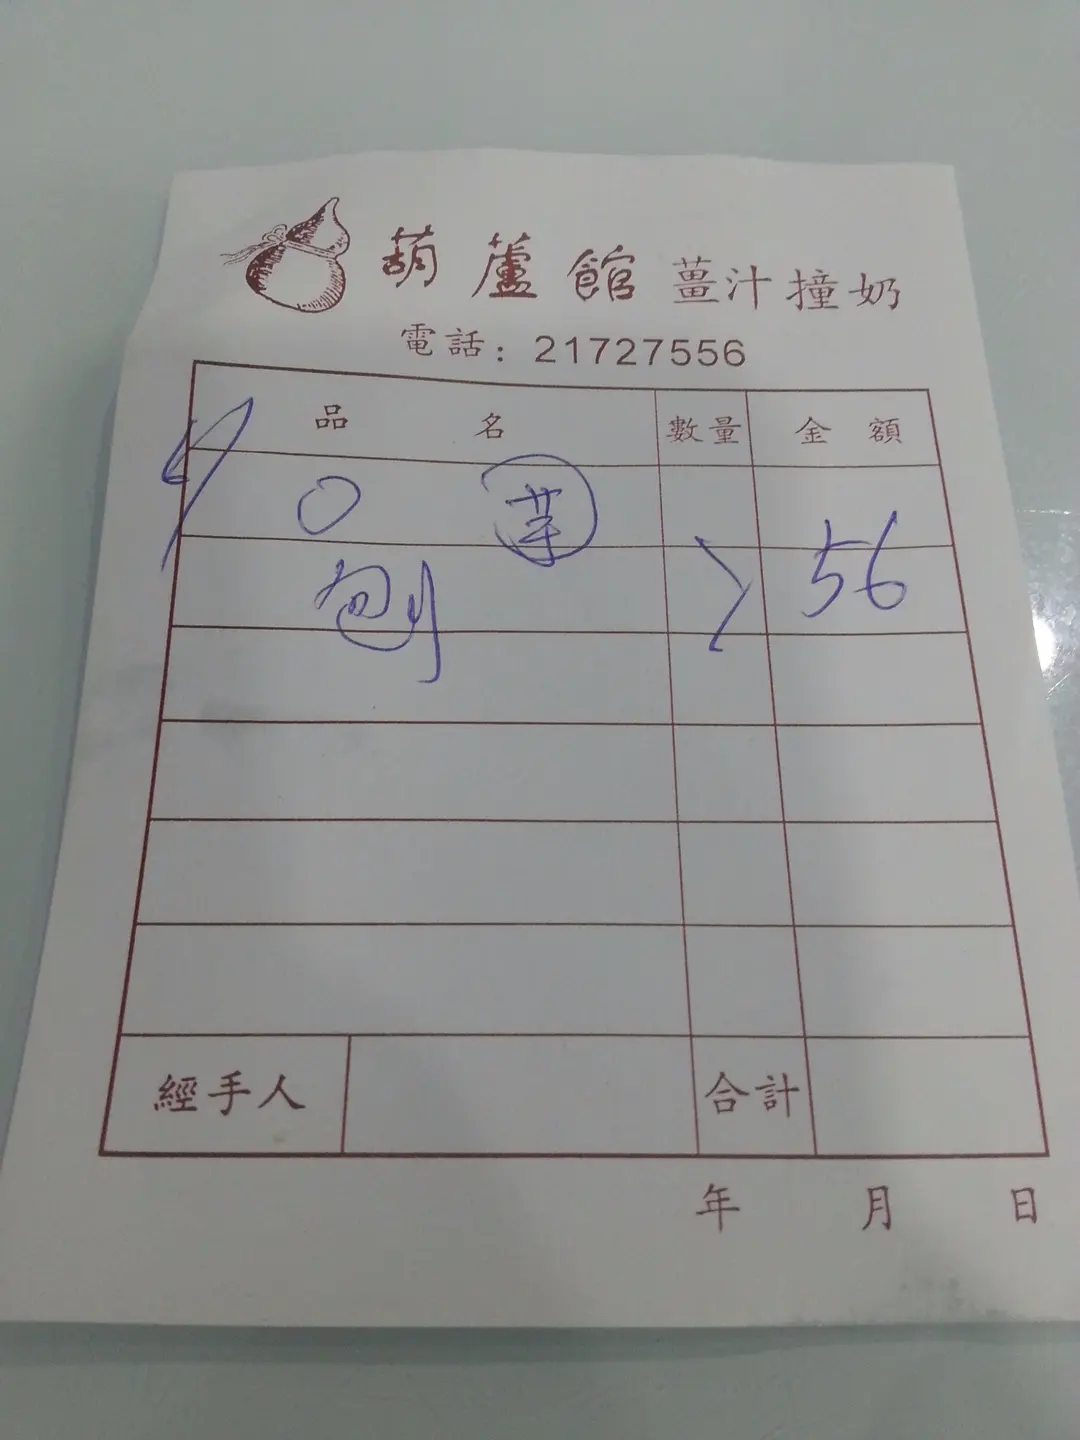 葫蘆館 薑汁撞奶
電話: 21727556
品名 數量 金額
芋
56
經手人 合計
年 月 日